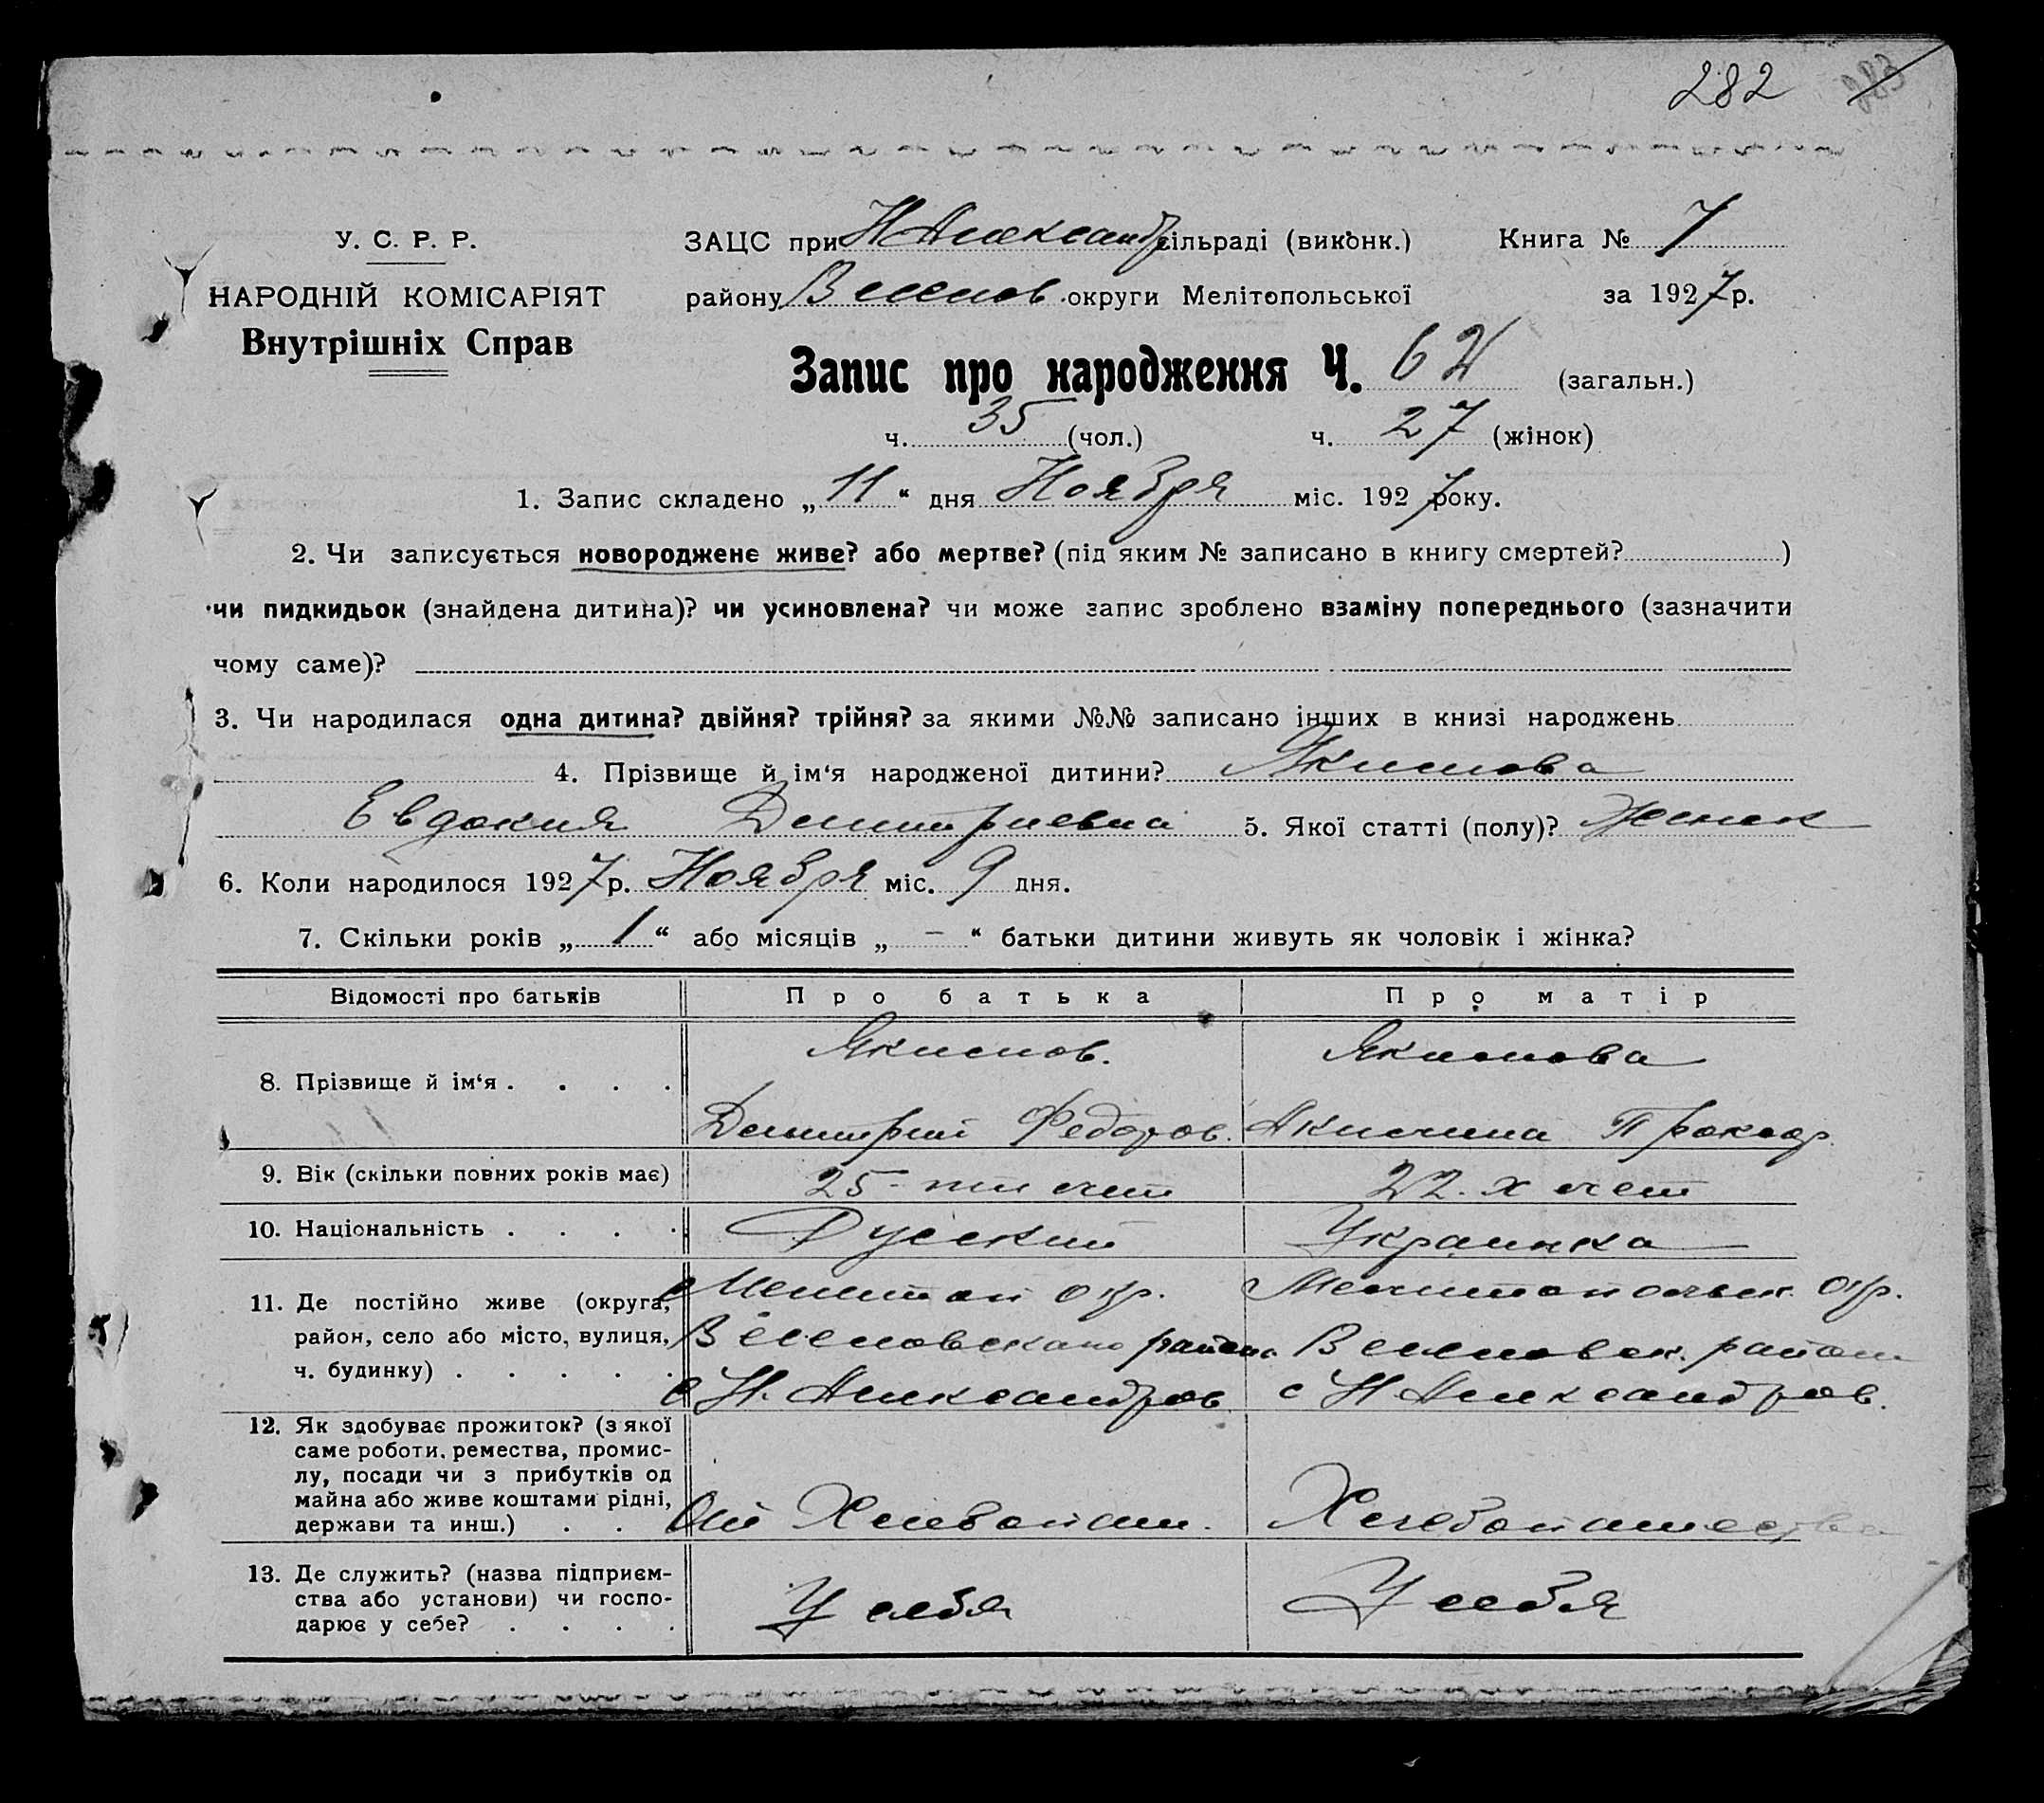 282 283
У. С. Р. Р.
НАРОДНІЙ КОМІСАРІЯТ
Внутрішніх Справ
ЗАЦС при Н Александр сільраді (виконк.) Книга № 7
району Веселов. округи Мелітопольської за 1927 р.
Запис про народження Ч. 62 (загальн.)
ч. 35 (чол.) ч. 27 (жінок)
1. Запис складено „ 11 “ дня Ноября міс. 1927 року.
2. Чи записується новороджене живе? або мертве? (під яким № записано в книгу смертей? )
чи пидкидьок (знайдена дитина)? чи усиновлена? чи може запис зроблено взаміну попереднього (зазначити
чому саме)?
3. Чи народилася одна дитина? двійня? трійня? за якими №№ записано інших в книзі народжень
4. Прізвище й ім‘я народженої дитини? Якимова
Евдокия Димитриевна 5. Якої статті (полу)? Женск
6. Коли народилося 1927 р. Ноября міс. 9 дня.
7. Скільки років „ 1 “ або місяців „ – “ батьки дитини живуть як чоловік і жінка?
Відомості про батьків Про батька Про матір
8. Прізвище й ім‘я . . . . Якимов. Якимова
Димитрий Федоров. Акилина Прокоф.
9. Вік (скільки повних років має) 25-ти лет 22-х лет
10. Національність . . . . Русский Украинка
11. Де постійно живе (округа, Мелитоп окр. Мелитопольск. окр.
район, село або місто, вулиця, Веселовского район. Веселовск. район
ч. будинку) . . . . . с Н. Александров. с Н Александров.
12. Як здобуває прожиток? (з якої
саме роботи, ремества, промис-
лу, посади чи з прибутків од
майна або живе коштами рідні,
держави та инш.) . . От Хлебопаш. Хлебопашества
13. Де служить? (назва підприєм-
ства або установи) чи госпо-
дарює у себе? . . . . У себя У себя